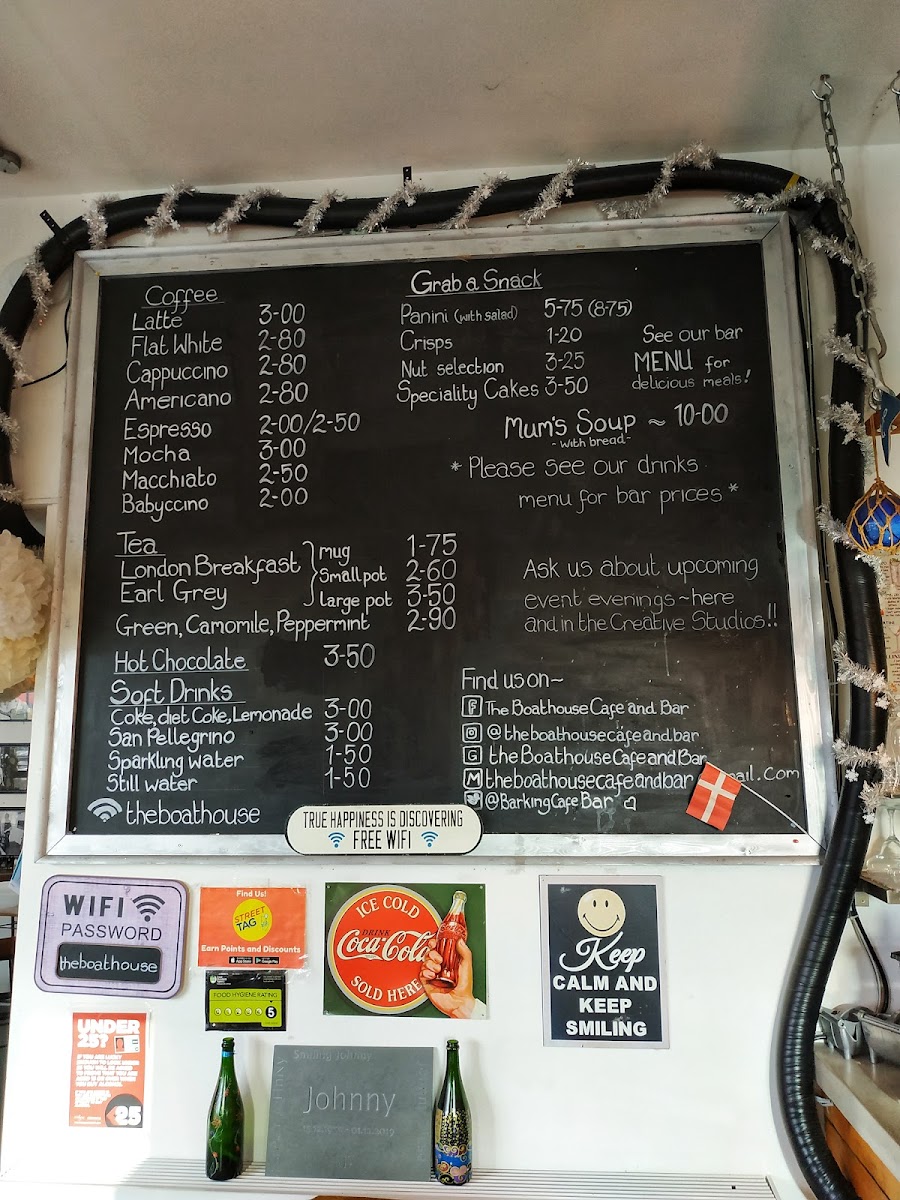 Coffee
Latte 3-00
Flat White 2-80
Cappuccino 2-80
Americano 2-80
Espresso 2-00/2-50
Mocha 3-00
Macchiato 2-50
Babyccino 2-00
Tea
London Breakfast
Earl Grey
mug 1-75
Small pot 2-60
large pot 3-50
Green, Camomile, Peppermint 2-90
Hot Chocolate 3-50
Soft Drinks
Coke, diet Coke, Lemonade 3-00
San Pellegrino 3-00
Sparkling water 1-50
Still water 1-50
theboathouse
Grab a Snack
Panini (with salad) 5-75 (8-75)
Crisps 1-20
Nut selection 3-25
Speciality Cakes 3-50
See our bar
MENU for
delicious meals!
Mum's Soup ~ 10-00
- with bread -
* Please see our drinks
menu for bar prices *
Ask us about upcoming
event evenings ~ here
and in the Creative Studios!!
Find us on ~
The Boathouse Cafe and Bar
@theboathousecafeandbar
the Boathouse Cafe and Bar
theboathousecafeandbar mail.com
@BarkingCafeBar
TRUE HAPPINESS IS DISCOVERING
FREE WIFI
WIFI
PASSWORD
theboathouse
Find Us!
STREET
TAG
Earn Points and Discounts
App Store
Google Play
FOOD HYGIENE RATING
5
ICE COLD
DRINK
Coca-Cola
SOLD HERE
Keep
CALM AND
KEEP
SMILING
UNDER
25?
25
Smiling Johnny
Johnny